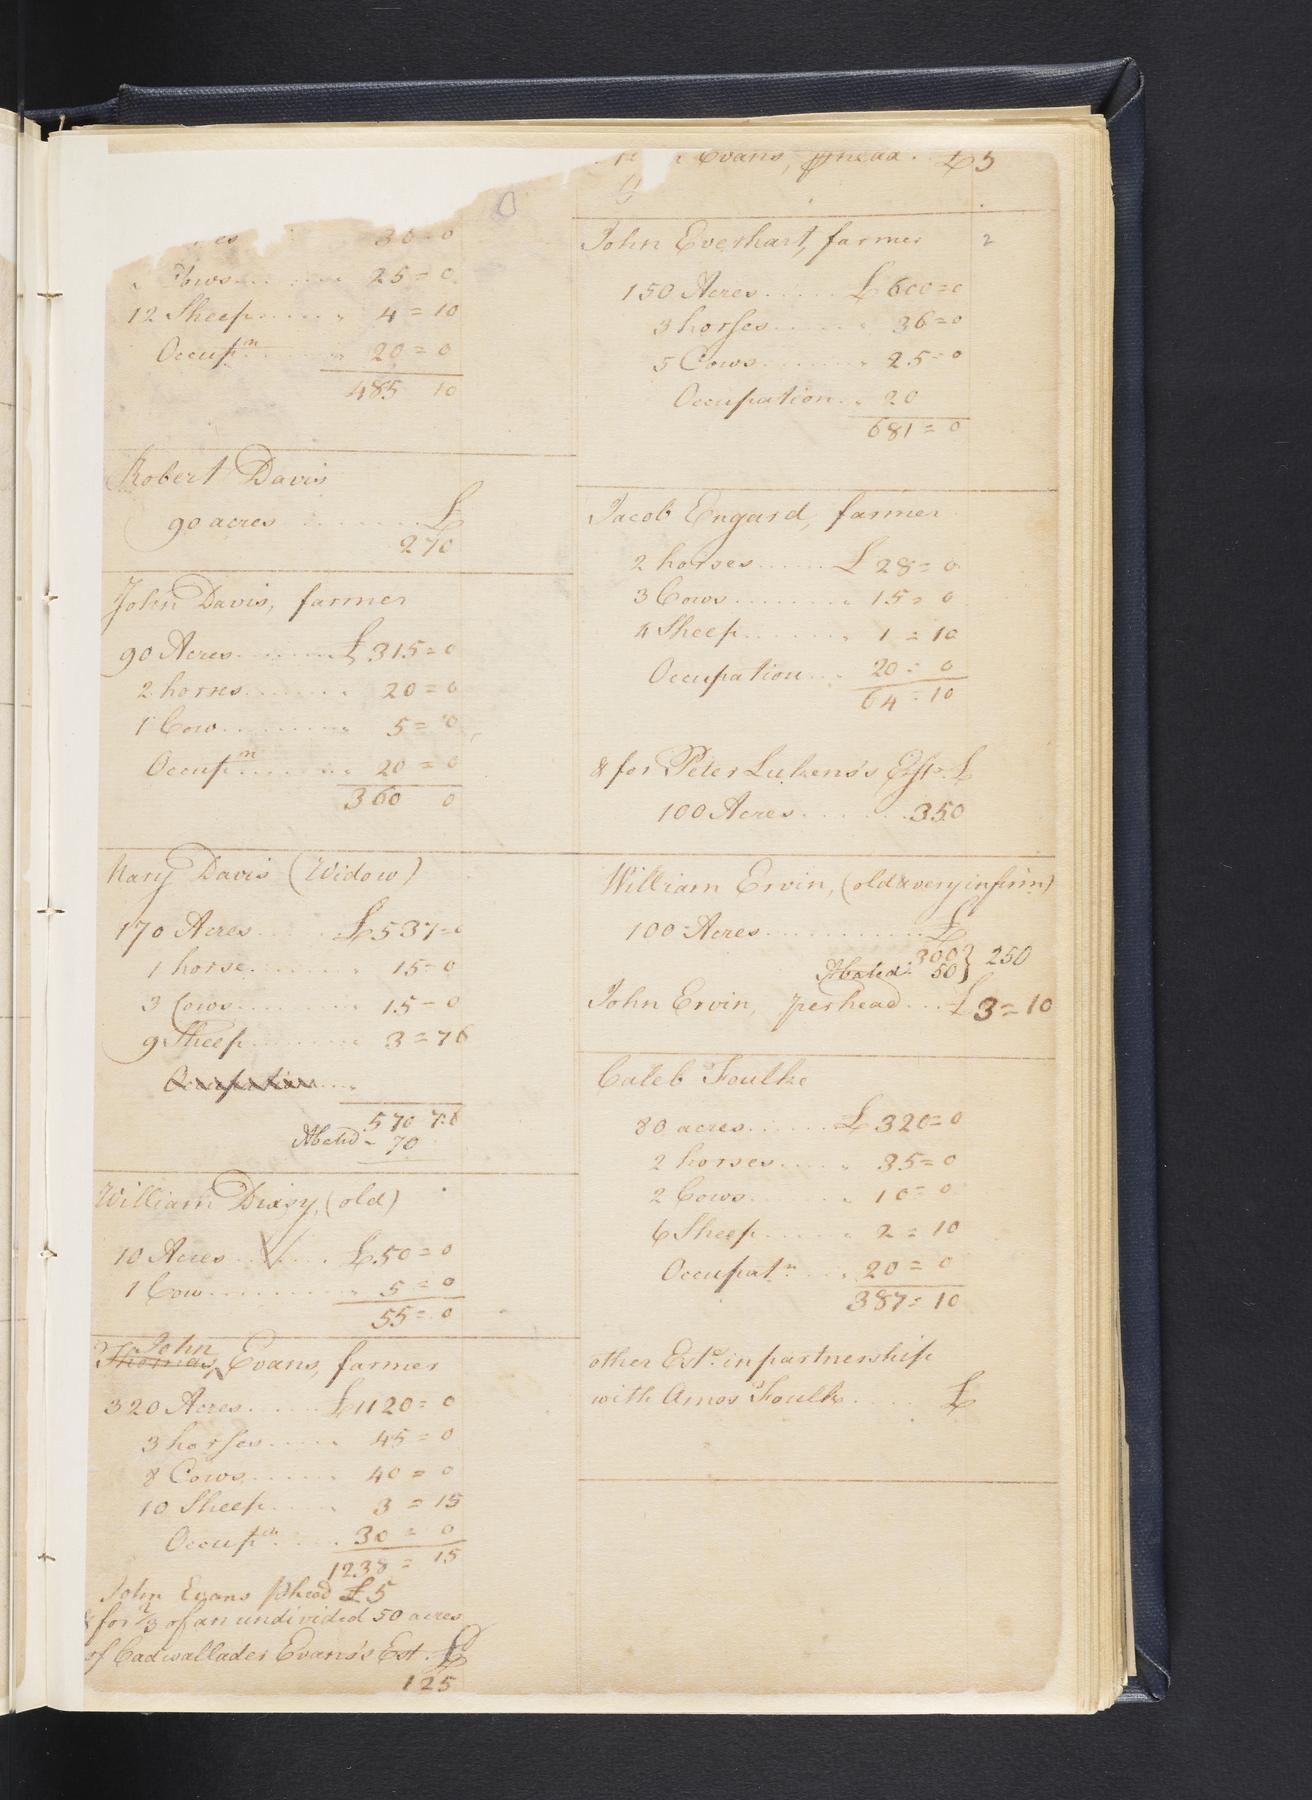 es 36=0
Cows...... 25=0
12 Sheep...... 4=10
Occupn...... 20=0
485 10
Robert Davis
90 acres ...... £
270
John Davis, farmer
90 Acres...... £315=0
2 horses...... 20=0
1 Cow...... 5=0
Occupn...... 20=0
360 0
Mary Davis (Widow)
170 Acres...... £537=0
1 horse...... 15=0
3 Cows...... 15=0
9 Sheep...... 3=76
Occupation....
570 7:6
Abated - 70
William Dixsy, (old)
10 Acres...... £50=0
1 Cow...... 5=0
55=0
John
Thomas, Evans, farmer
320 Acres...... £1120=0
3 horses...... 45=0
8 Cows...... 40=0
10 Sheep...... 3=15
Occupn...... 30=0
1238=15
John Evans phead £5
& for 2/3 of an undivided 50 acres
of Cadwallader Evans's Est. £
125
Evans, phead. £5
John Everhart, farmer 2
150 Acres...... £600=0
3 horses...... 36=0
5 Cows...... 25=0
Occupation.. 20
681=0
Jacob Engard, farmer
2 horses...... £28=0
3 Cows...... 15=0
4 Sheep...... 1=10
Occupation... 20=0
64=10
& for Peter Lukens's Est. £
100 Acres...... 350
William Ervin, (old & very infirm)
100 Acres...... £
300} 250
Abated. 50}
John Ervin, perhead... £3=10
Caleb Foulke
80 acres...... £320=0
2 horses...... 35=0
2 Cows...... 10=0
6 Sheep...... 2=10
Occupatn.... 20=0
387=10
other Este. in partnership
with Amos Foulk..... £